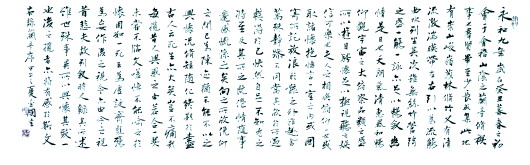 永和九年歲在癸丑暮春之初
會于會稽山陰之蘭亭修禊
事也群賢畢至少長咸集此地
有崇山峻領茂林修竹又有清
流激湍暎帶左右引以為流觴
曲水列坐其次雖無絲竹管弦
之盛一觴一詠亦足以暢敘幽
情是日也天朗氣清惠風和暢
仰觀宇宙之大俯察品類之盛
所以遊目騁懷足以極視聽之娛
信可樂也夫人之相與俯仰一世或
取諸懷抱悟言一室之內或因
寄所託放浪形骸之外雖趣舍
萬殊靜躁不同當其欣於所遇
暫得於己快然自足不知老之
將至及其所之既惓情隨事遷
感慨係之矣向之所欣俛仰
之間已為陳迹猶不能不以之
興懷況修短隨化終期於盡
古人云死生亦大矣豈不痛哉
每攬昔人興感之由若合一契
未嘗不臨文嗟悼不能喻之於
懷固知一死生為虛誕齊彭殤
為妄作後之視今亦由今之視
昔悲夫故列敘時人錄其所述
雖世殊事異所以興懷其致一
也後之攬者亦將有感於斯文
右錄蘭亭序